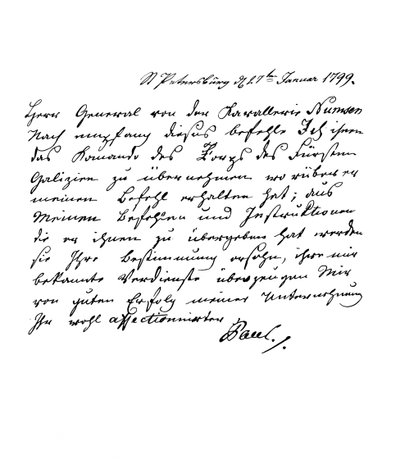 St Petersburg d 17ten Januar 1799.
Herr General von der Kavallerie Numsen
Nach empfang dieses befehle Ich ihnen
das Komando des Korps des Fürsten
Galizien zu übernehmen worüber er
meinen Befehl erhalten hat; aus
Meinen Befehlen und Instruktionen
die er ihnen zu übergeben hat werden
sie Ihre Bestimmung ersehn, ihre mir
bekannte Verdienste überzeugen Mir
von guten Erfolg meiner Unternehmung
Ihr wohl affectionnirter
Paul.